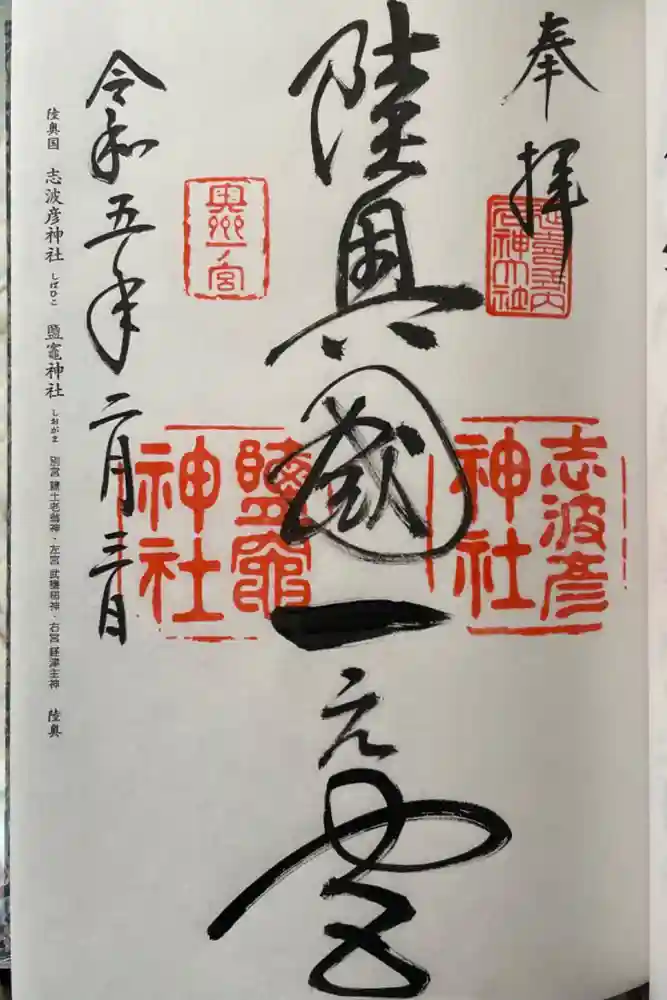 奉拝
志波彦
神社
陸奥國一之宮
奥州一宮
鹽竈
神社
令和五年二月三日
陸奥国 志波彦神社 しばひこ 鹽竈神社 しおがま 別宮 鹽土老翁神・左宮 武甕槌神・右宮 経津主神 陸奥